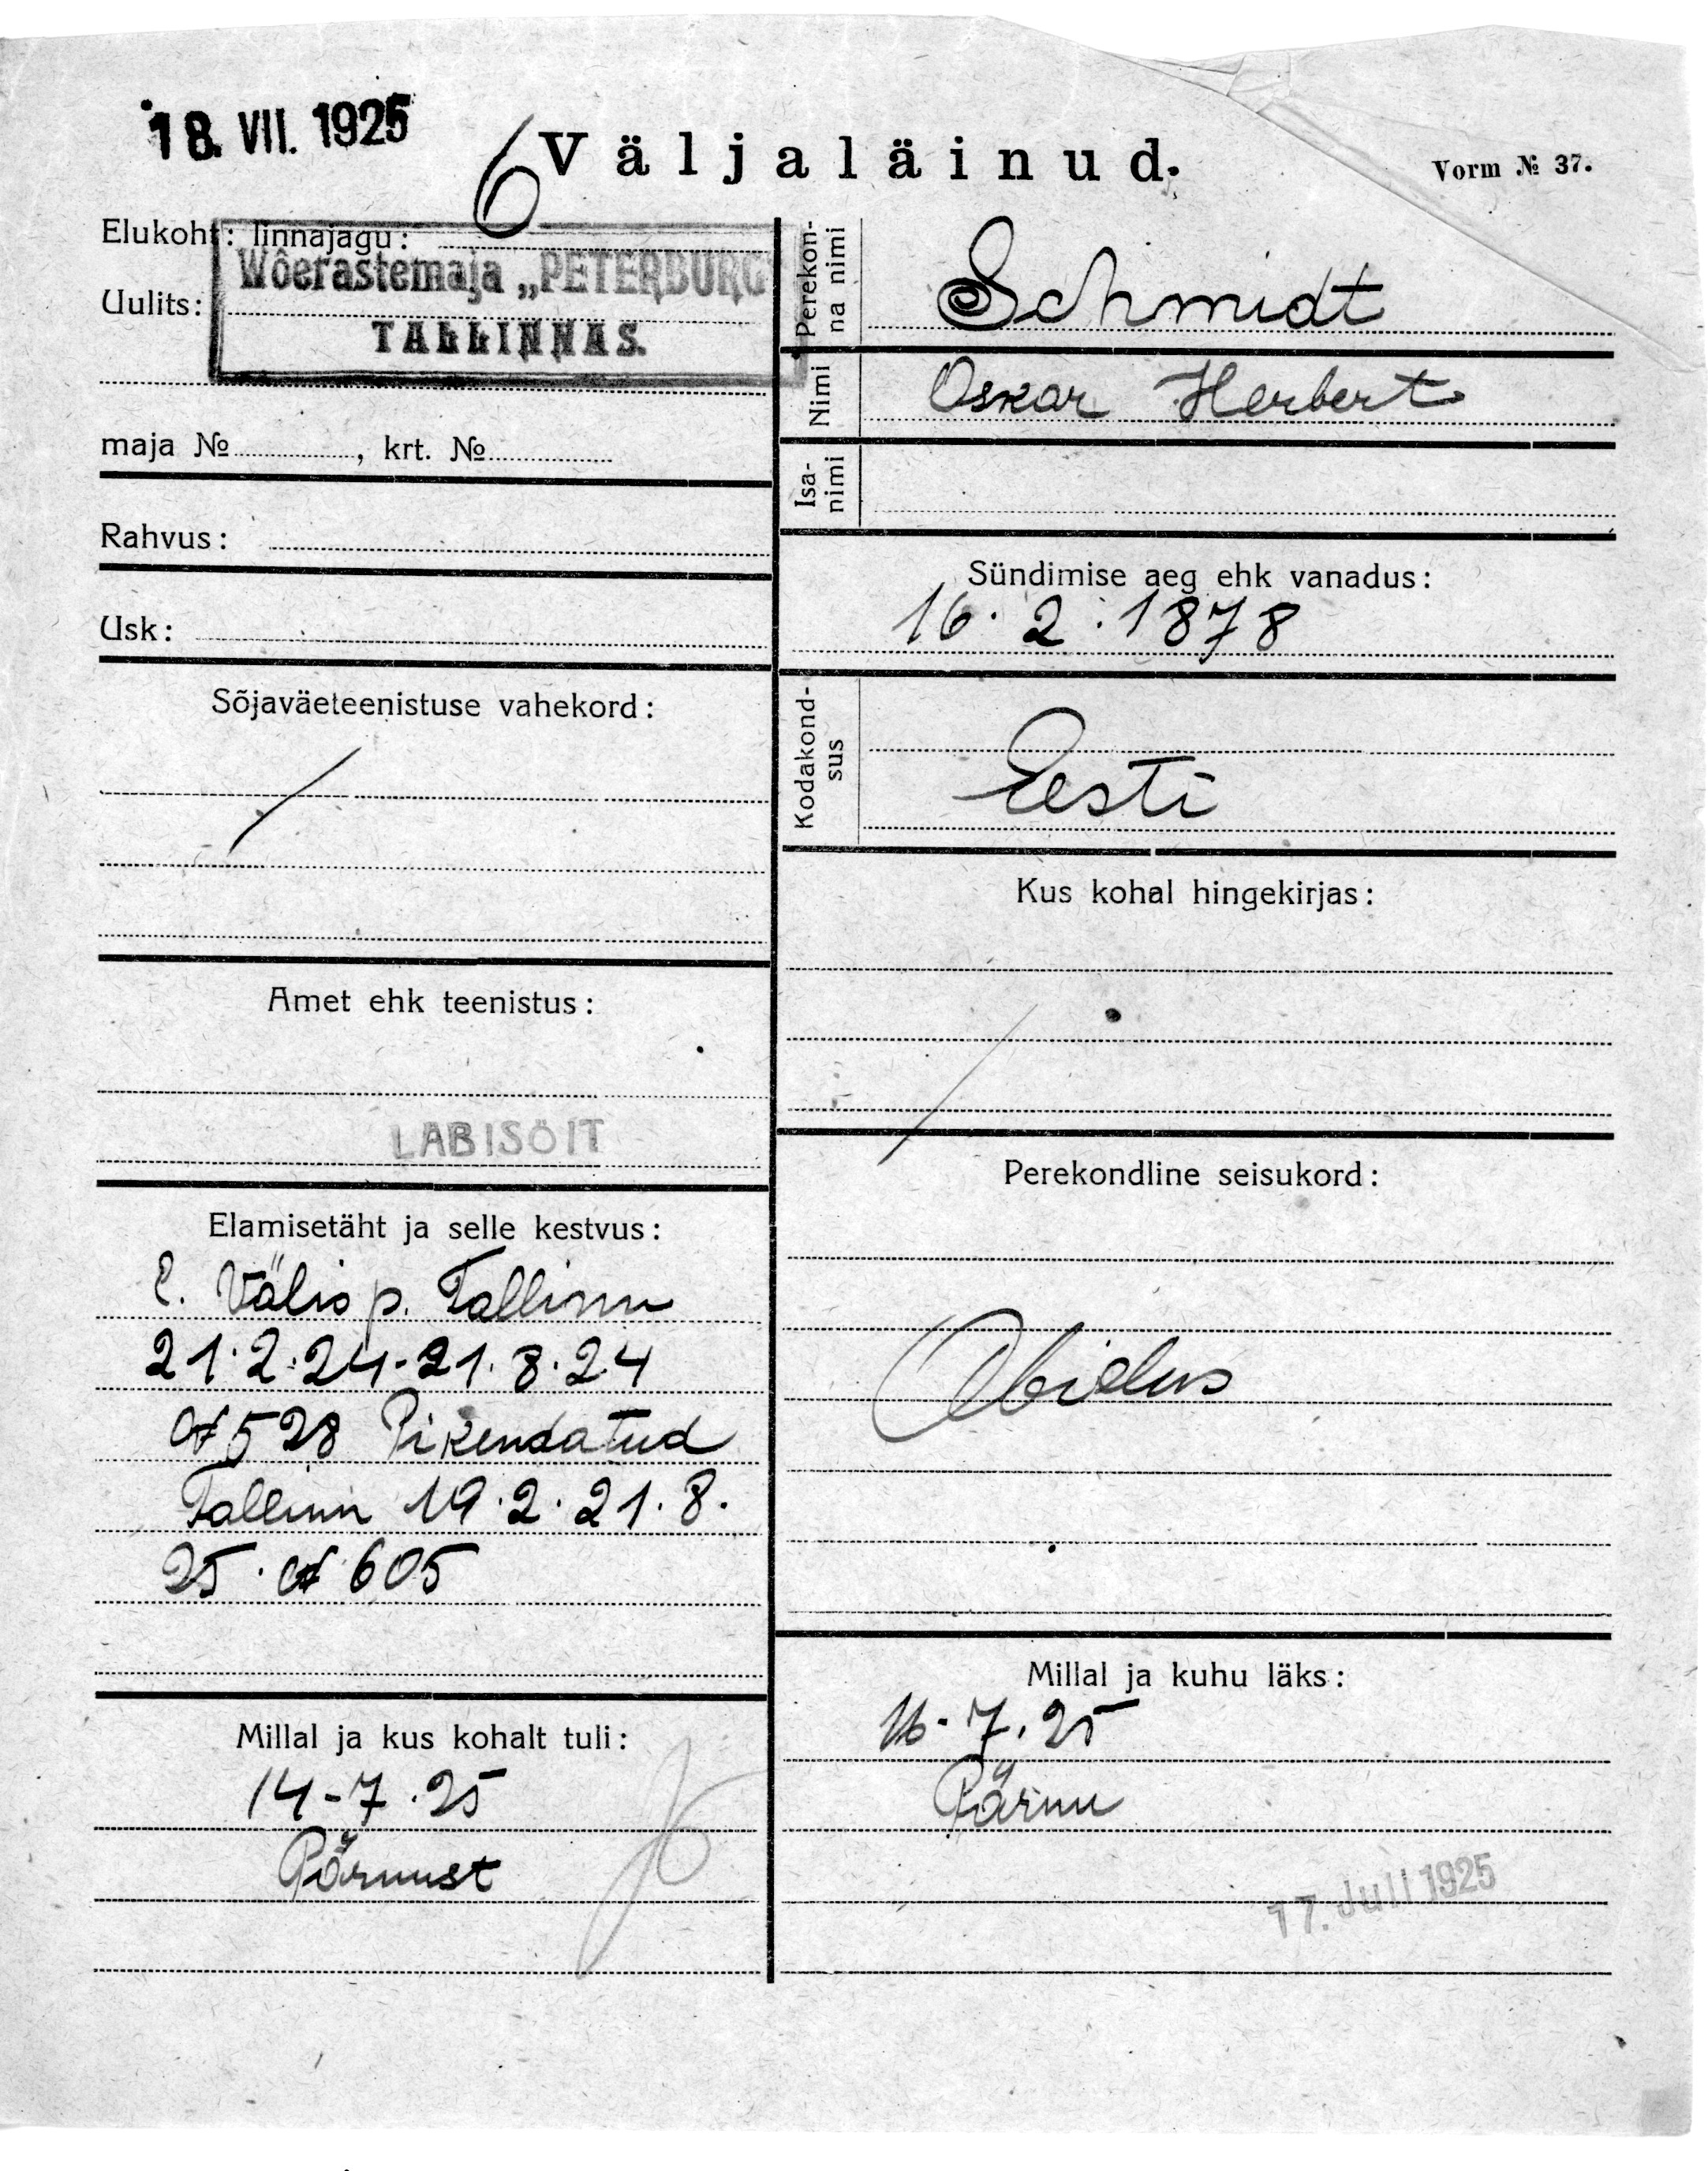 18. VII. 1925
6
Väljaläinud.
Vorm № 37.
Elukoht: linnajagu:
Wõerastemaja „PETERBURG"
Uulits:
TALLINNAS.
maja № , krt. №
Rahvus:
Usk:
Sõjaväeteenistuse vahekord:
Amet ehk teenistus:
LABISÕIT
Elamisetäht ja selle kestvus:
E. Välisp. Tallinn
21.2.24-21.8.24
№ 528 Pikendatud
Tallinn 19.2.21.8.
25. № 605
Millal ja kus kohalt tuli:
14-7.25
Pärnust
Perekonna nimi
Schmidt
Nimi
Oskar Herbert
Isanimi
Sündimise aeg ehk vanadus:
16.2.1878
Kodakondsus
Eesti
Kus kohal hingekirjas:
Perekondline seisukord:
Abielus
Millal ja kuhu läks:
16-7.25
Pärnu
17. Juli 1925